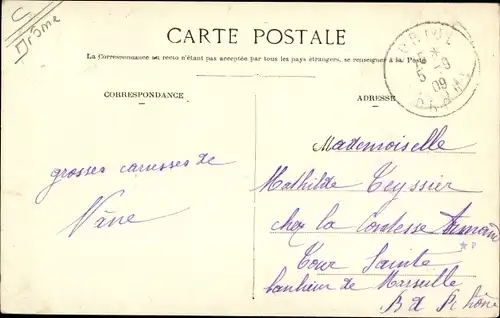 Drôme
CARTE POSTALE
La Correspondance au recto n'étant pas acceptée par tous les pays étrangers, se renseigner à la Poste
CORRESPONDANCE
ADRESSE
CRIUL
5 - 9
09
DRÔME
Mademoiselle
Mathilde Teyssier
chez la Comtesse Armand
Tour Sainte
banlieue de Marseille
B d R hône
grosses caresses de